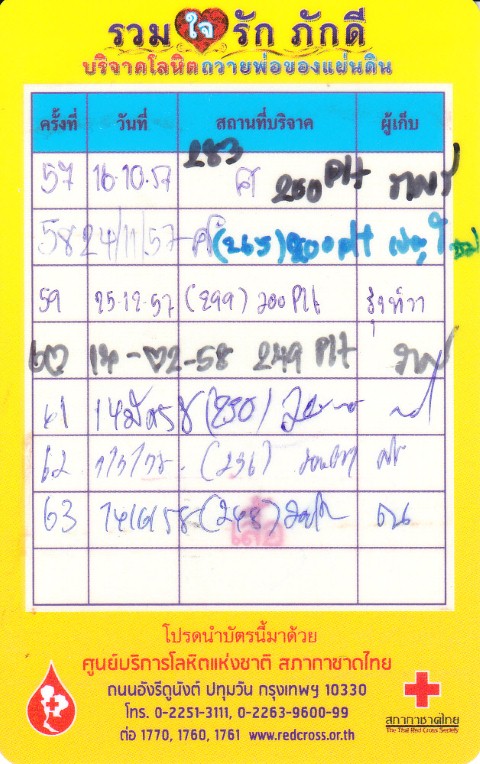 รวม ใจ รัก ภักดี
บริจาคโลหิตถวายพ่อของแผ่นดิน
ครั้งที่ วันที่ สถานที่บริจาค ผู้เก็บ
283
57 16.10.57 ศ 250 Plt
58 24/11/57 (265) 200 plt
59 25-12-57 (299) 200 Plt
60 14-02-58 249 Plt
61 14 58 (250)
62 (236)
63 14/6/58 (248)
โปรดนำบัตรนี้มาด้วย
ศูนย์บริการโลหิตแห่งชาติ สภากาชาดไทย
ถนนอังรีดูนังต์ ปทุมวัน กรุงเทพฯ 10330
โทร. 0-2251-3111, 0-2263-9600-99
ต่อ 1770, 1760, 1761 www.redcross.or.th
สภากาชาดไทย
The Thai Red Cross Society